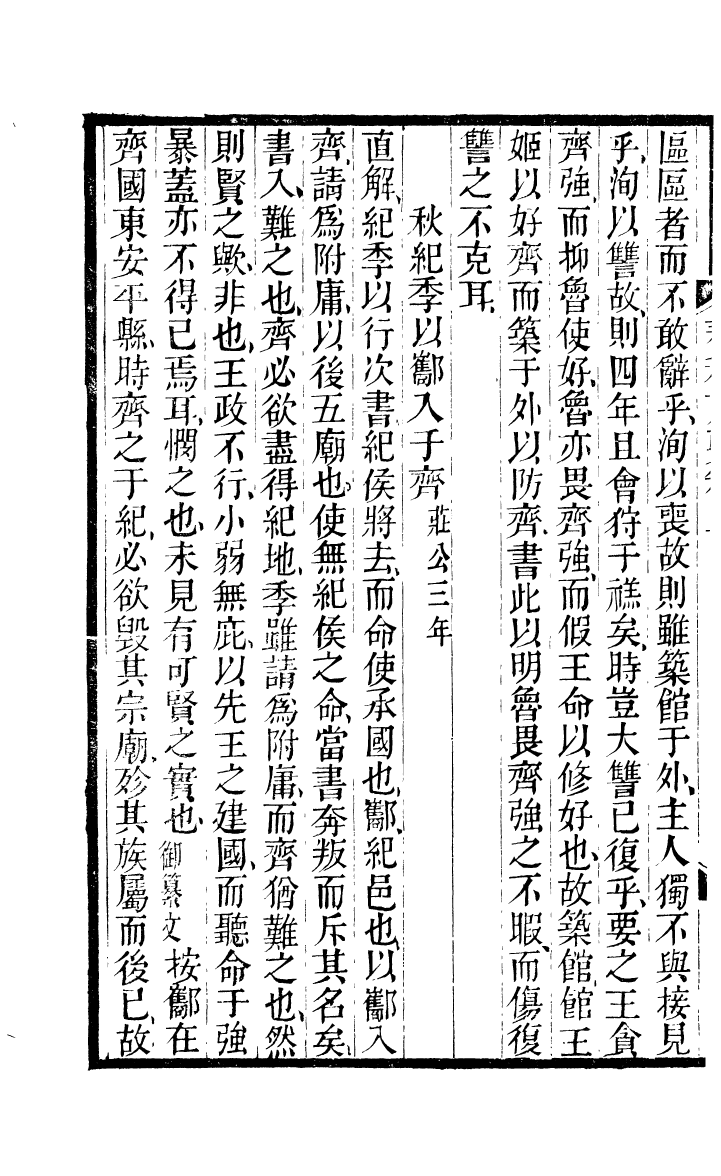 區區者而不敢辭乎、洵以喪故則雖築館于外、主人獨不與接見
乎、洵以讐故、則四年且會狩于禚矣、時豈大讐已復乎、要之王貪
齊強、而抑魯使好、魯亦畏齊強、而假王命以修好也、故築館館王
姬以好齊而築于外以防齊、書此以明魯畏齊強之不暇、而傷復
讐之不克耳、
秋紀季以酅入于齊 莊公三年
直解、紀季以行次書、紀侯將去、而命使承國也、酅、紀邑也、以酅入
齊、請爲附庸、以後五廟也、使無紀侯之命、當書奔叛而斥其名矣、
書入、難之也、齊必欲盡得紀地、季雖請爲附庸、而齊猶難之也、然
則賢之歟、非也、王政不行、小弱無庇、以先王之建國、而聽命于強
暴、蓋亦不得已焉耳、憫之也、未見有可賢之實也、御纂文 按酅在
齊國東安平縣、時齊之于紀、必欲毀其宗廟、殄其族屬而後已、故